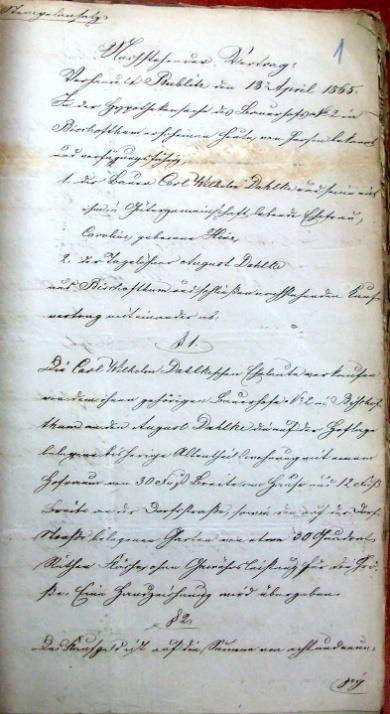 Stempelansatz
1
Nachstehender Vertrag.
Verhandelt Bublitz den 13 April 1865.
In der Hypothekensache des Bauerhofs No 2 in
Bischofthum erschienen heute, von Person bekannt
und verfügungsfähig,
1. der Bauer Carl Wilhelm Dahlke und seine mit
ihm in Gütergemeinschaft lebende Ehefrau,
Caroline, geborene
2. der Tagelöhner August Dahlke
aus Bischofthum und schließen nachstehenden Kauf-
vertrag mit einander ab.
§ 1.
Die Carl Wilhelm Dahlkeschen Eheleute verkaufen
von dem ihnen gehörigen Bauerhofe No 2 in Bischof-
thum an den August Dahlke die auf der Hoflage
belegene bisherige Altentheilswohnung mit einem
Hofraum von 30 Fuß Breite vom Hause und 12 Fuß
Breite an der Dorfstraße, sowie den auf der Dorf-
straße belegenen Garten von etwa 30 Quadrat
Ruthen Fläche, ohne Gewährsleistung für die Grö-
ße. Eine Handzeichnung wird übergeben.
§ 2.
Das Kaufgeld ist auf die Summe von